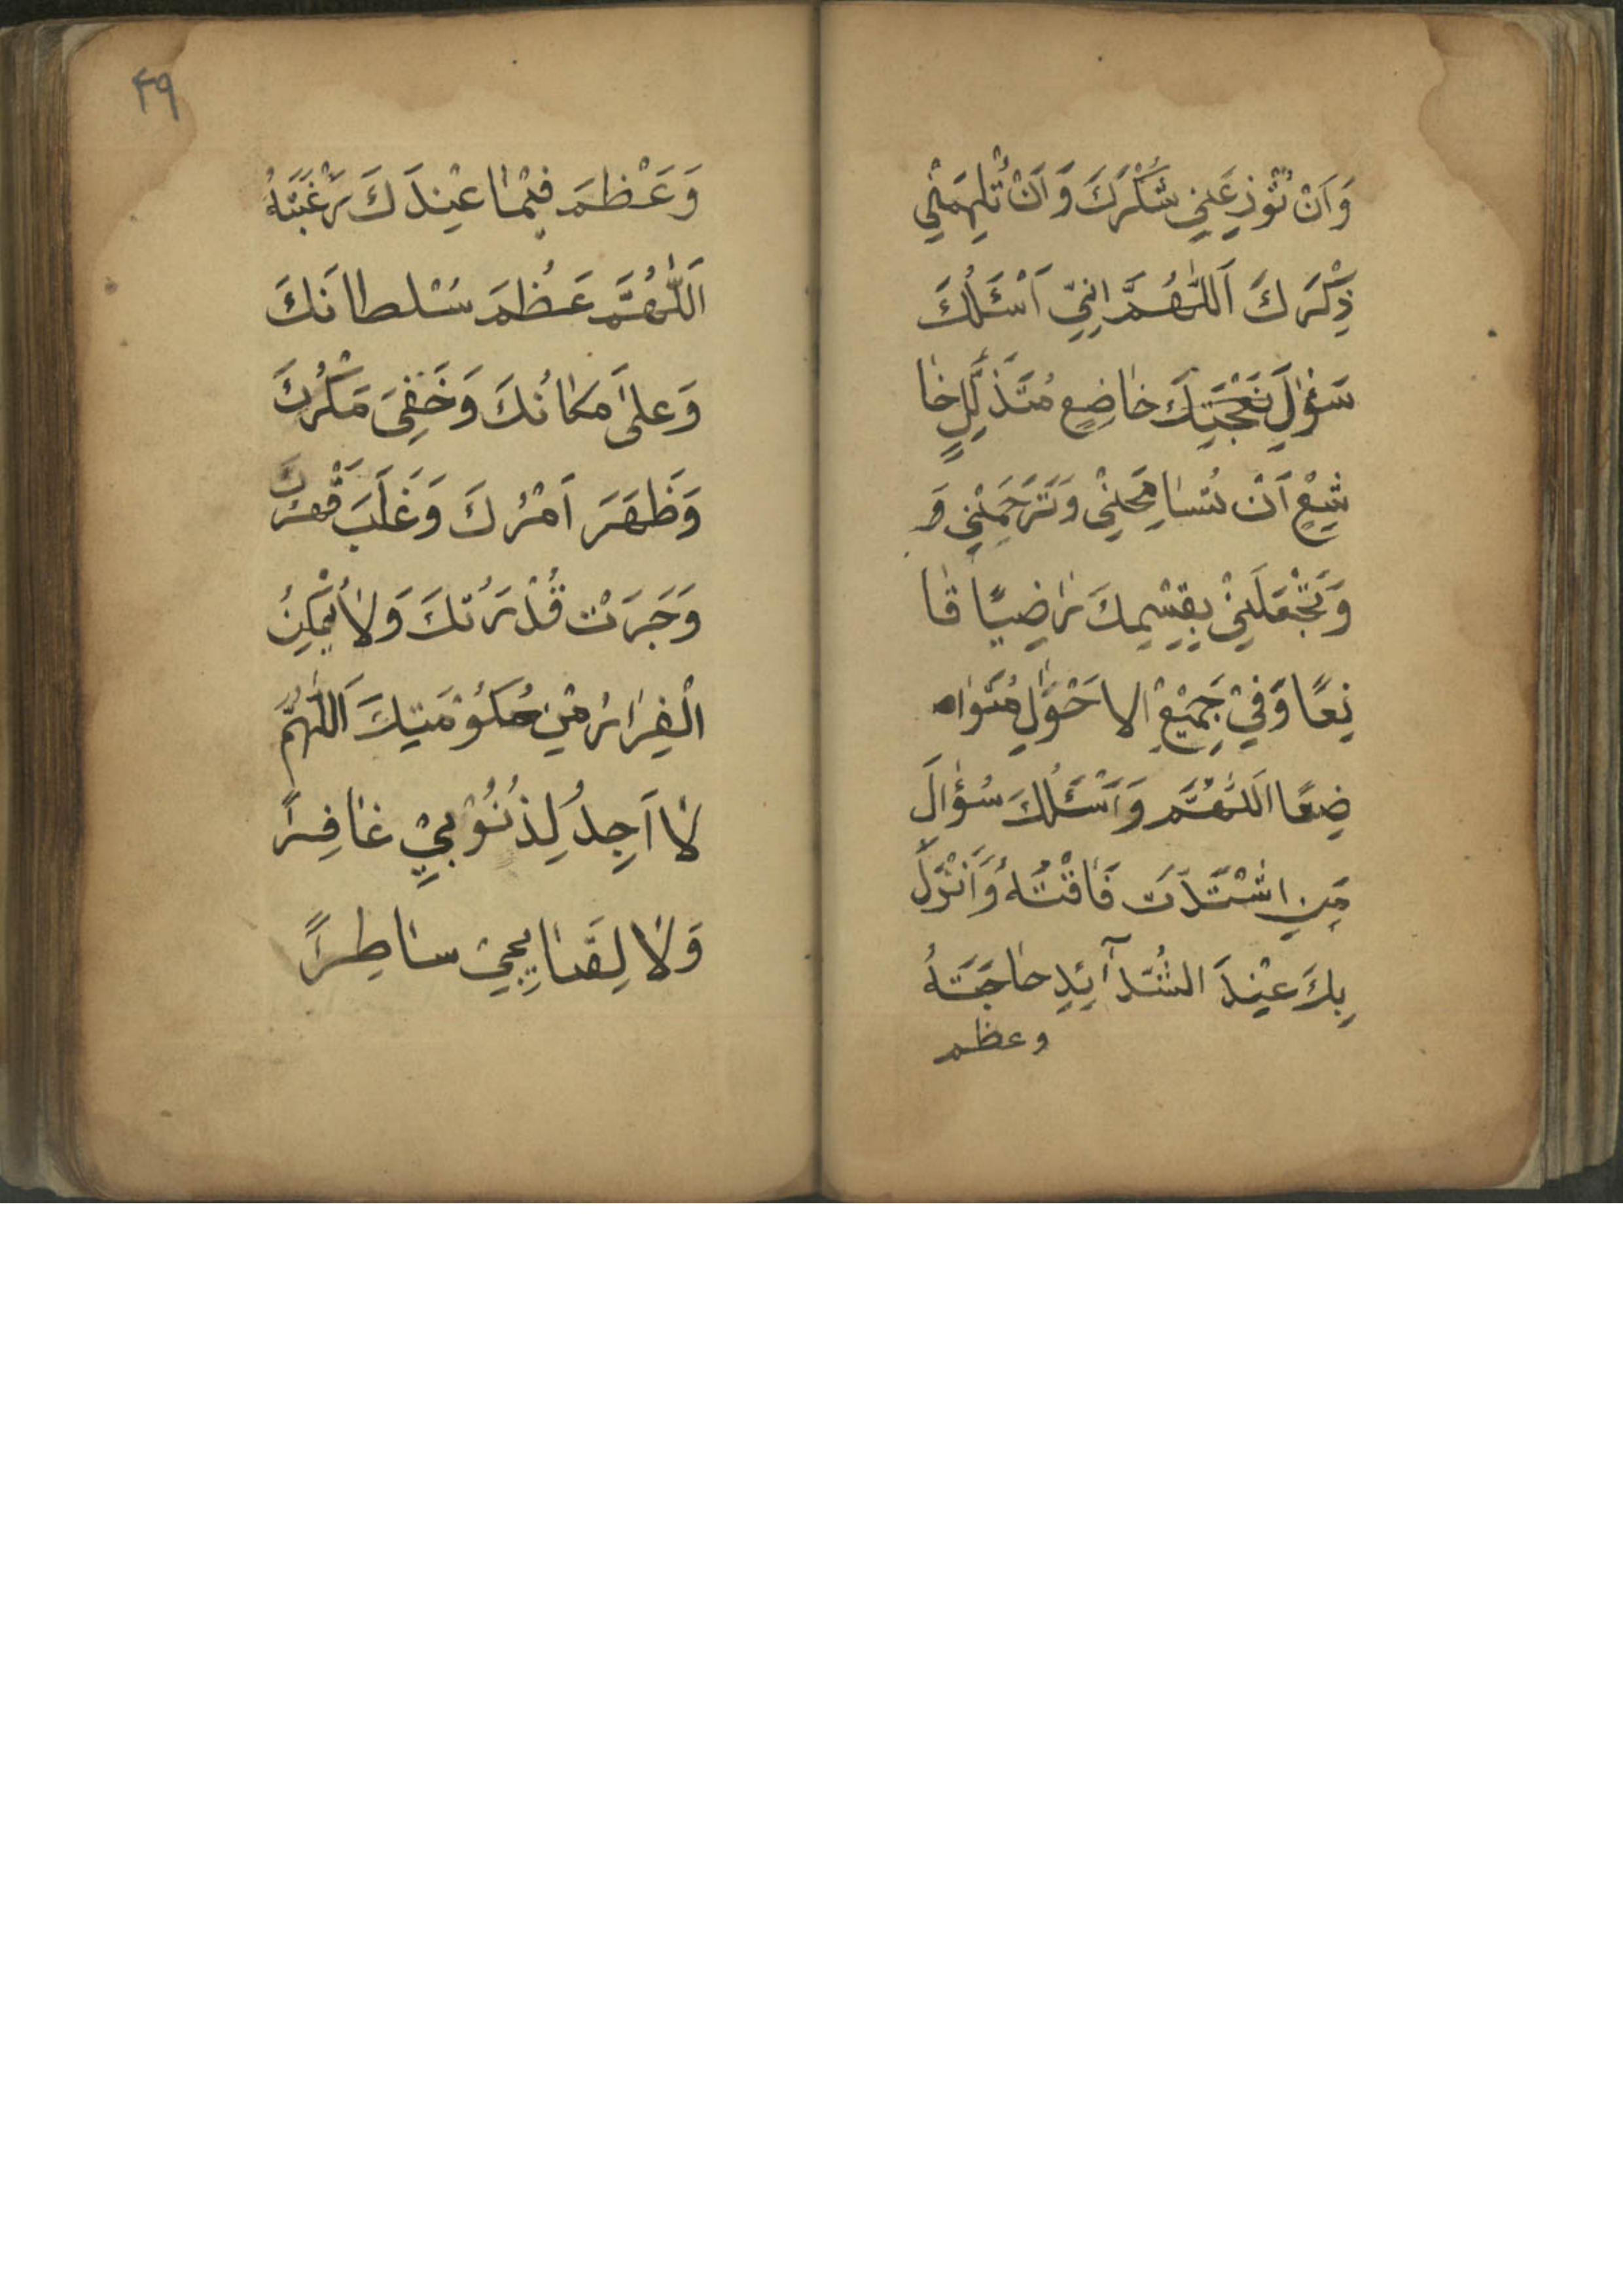 وَاَنْ تُوْذِعَنِي شُكْرَكَ وَاَنْ تُلْهِمَنْي
ذِكْرَكَ اَللّٰهُمَّ اِنِّيْ اَسْئَلُكَ
سَؤٰلَ خاضِعٍ مُتَذَلِّلٍ خٰا
شِيْعٍ اَنْ تُسٰامِحَنِيْ وَتَرْحَمَنْيِ وَ
وَتَجْعَلَنِيْ بِقِسْمِكَ رٰاضِيًا قٰا
نِعًا وَفِيْ جَمِيْعِ الاحَوْٰلِ مُتَوٰا
ضِعًا اَللّٰهُمَّ وَاَسْئَلُكَ سُؤٰالَ
مَنِ اشْتَدَّتْ فَاقَتُهُ وَاَنْزَلَ
بِكَ عِنْدَ الشَّدآئِدِ حٰاجَتَهُ
وعظم
۴۹
وَعَظْمَ فِيْمٰا عِنْدَكَ رَغْبَتَهُ
اَللّٰهُمَّ عَظُمَ سُلْطانَكَ
وَعَلىٰ مَكٰانُكَ وَخَفِيَ مَكْرُكَ
وَظَهَرَ اَمْرُكَ وَغَلَبَ قَهْرُكَ
وَجَرَتْ قُدْرَتُكَ وَلٰا يُمْكِنُ
الْفِرٰارُ مِنْ حُكُوْمَتِكَ اَللّٰهُمَّ
لٰا اَجِدُ لِذُنُوْبِيْ غٰافِرًا
وَلٰا لِقَبٰايِحِيْ سٰاطِرًا